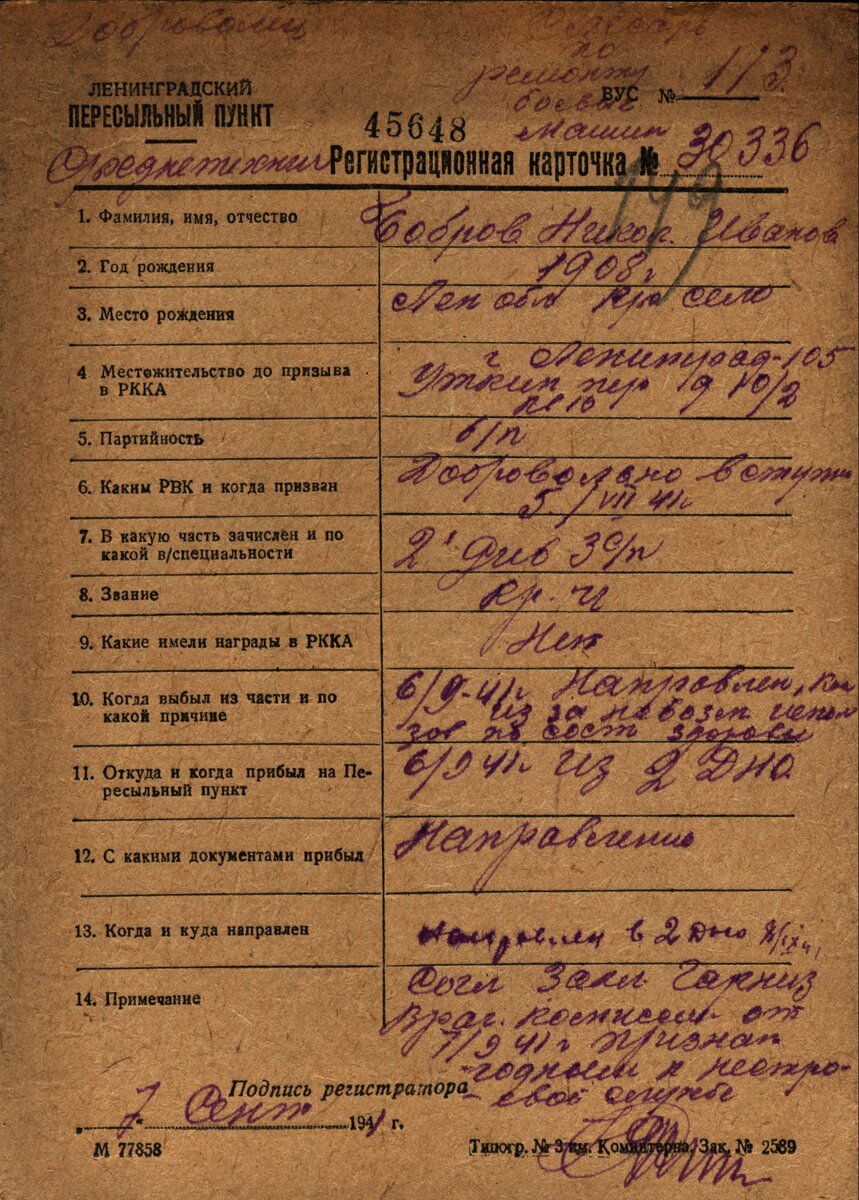 Доброволец
Слесарь
по
ремонту
боевых
машин
ЛЕНИНГРАДСКИЙ
ПЕРЕСЫЛЬНЫЙ ПУНКТ
ВУС № 113
45648
Регистрационная карточка № 30336
149
1. Фамилия, имя, отчество Бобров Никол. Иванов
2. Год рождения 1908 г
3. Место рождения Лен обл Кра село
4 Местожительство до призыва
в РККА
г. Ленинград-105
Уткин пер д 10/2
5. Партийность б/п
6. Каким РВК и когда призван Добровольно вступил
5/VII 41 г.
7. В какую часть зачислен и по
какой в/специальности
2 Див 3 с/п
8. Звание Кр-ц
9. Какие имели награды в РККА Нет
10. Когда выбыл из части и по
какой причине
6/9-41 г. Направлен,
из за невозм испол
зов по сост здоровья
11. Откуда и когда прибыл на Пе-
ресыльный пункт
6/9 41 г. из 2 ДНО
12. С какими документами прибыл Направление
13. Когда и куда направлен Направлен в 2 Дно
14. Примечание
Согл Закл Гарниз
Врач. комиссии от
7/9 41 г признан
годным к нестро-
евой службе
Подпись регистратора
7 Сент 1941 г.
М 77858
Типогр. № 3 им. Коминтерна, Зак. № 2589